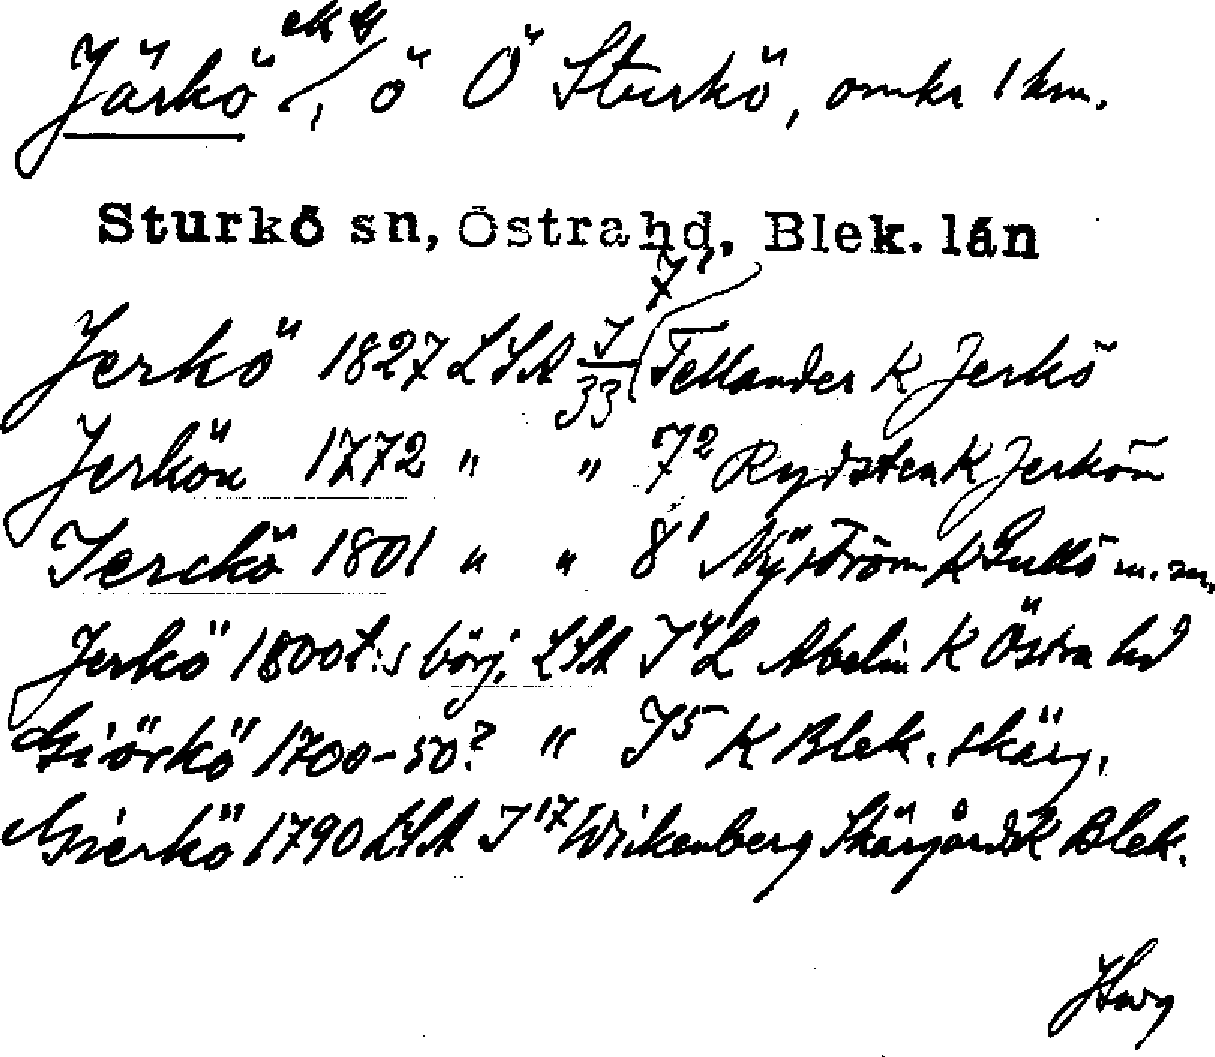 Järkö ekG, ö Ö Sturkö, omkr 1 km.
Sturkö sn, Östra hd, Blek. län
Jerkö 1827 LSA J/33 7¹ Tellander K Jerkö
Jerkön 1772 " " 7² Rydsten K Jerkön
Jerckö 1801 " " 8¹ Nyström K Gullö m.m.
Jerkö 1800t:s börj. LSA J⁴L Abelin K Östra hd
Giörkö 1700-50? " J⁵ K Blek. skärg.
Gierkö 1790 LSA J¹⁷ Wikenberg Skärgårds K Blek.